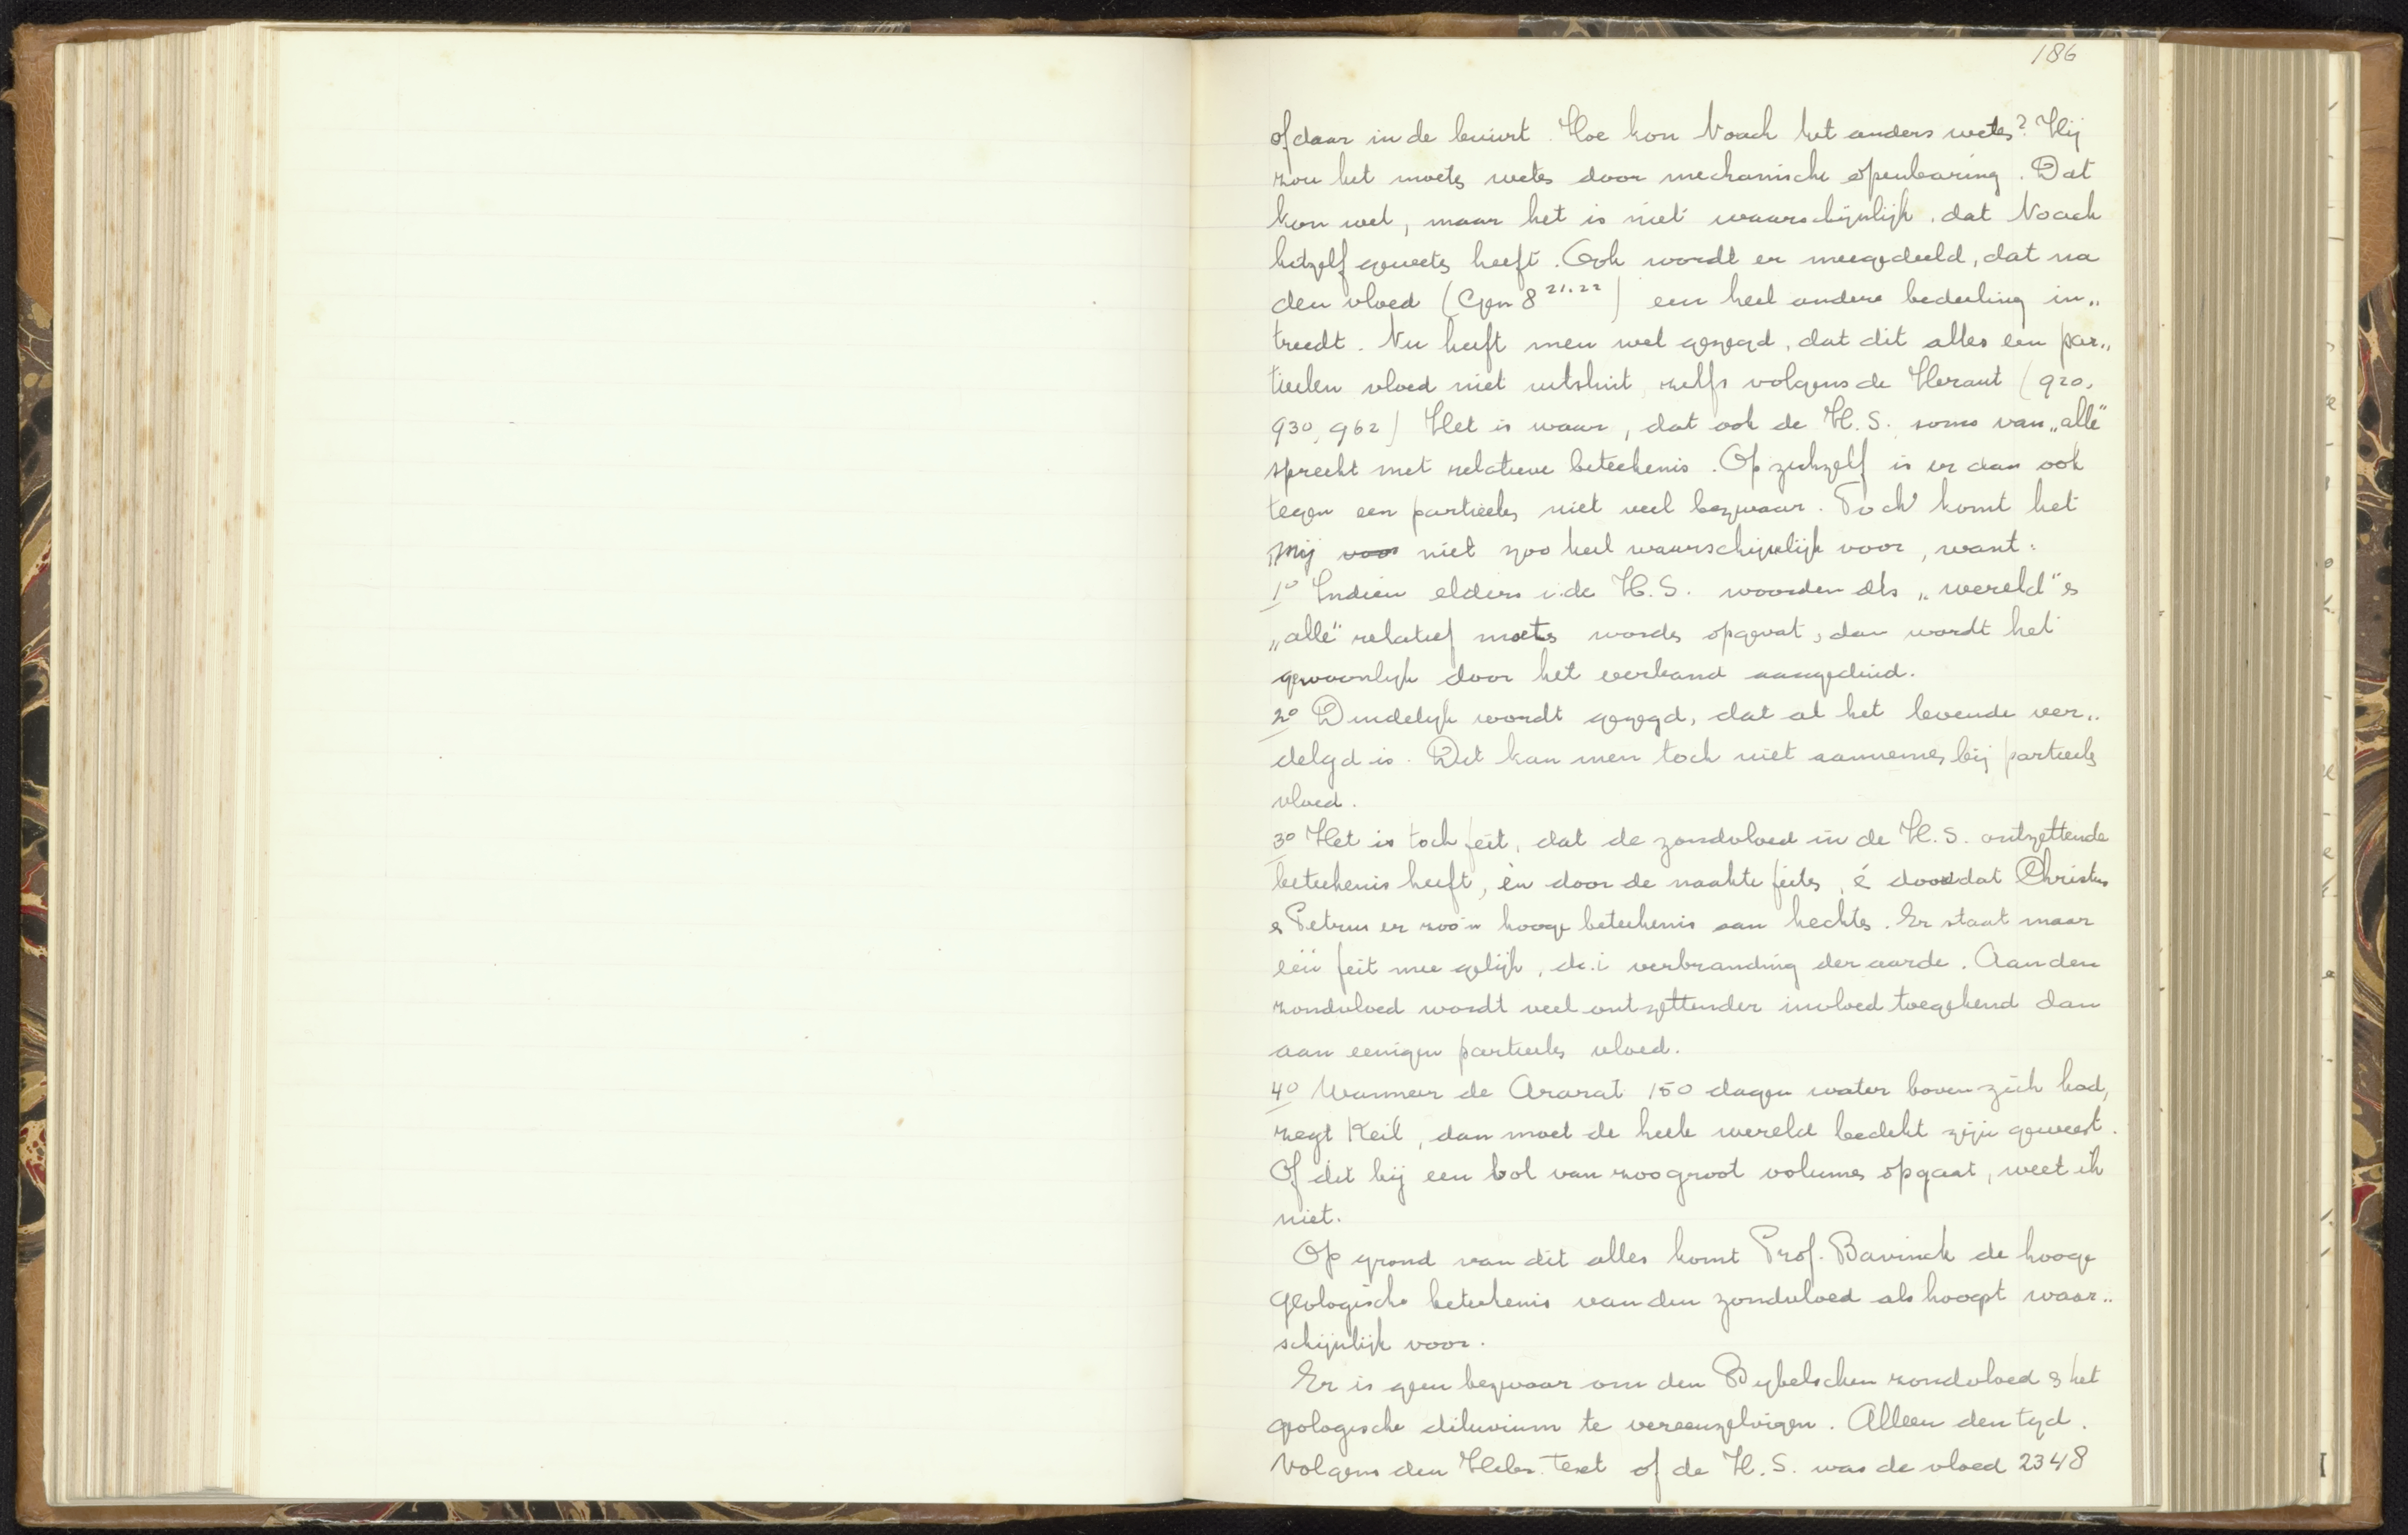 186
of daar in de buurt. Hoe kon Noach het anders weten? Hij
zou het moeten weten door mechanische openbaring. Dat
kon wel, maar het is niet waarschijnlijk, dat Noach
hetzelf geweten heeft. Ook wordt er meegedeeld, dat na
den vloed (Gen 8 21.22) een heel andere bedeeling in„
treedt. Nu heeft men wel gezegd, dat dit alles een par„
tieelen vloed niet uitsluit, zelfs volgens de Heraut (920,
930, 962) Het is waar, dat ook de H.S. soms van „alle"
spreekt met relatieve beteekenis. Op zichzelf is er dan ook
tegen een partieelen niet veel bezwaar. Toch komt het
mij voor niet zoo heel waarschijnlijk voor, want:
1o Indien elders i.de H.S. woorden als „wereld" en
„alle" relatief moeten worden opgevat, dan wordt het
gewoonlijk door het verband aangeduid.
2o Duidelijk wordt gezegd, dat al het levende ver„
delgd is. Dit kan men toch niet aannemen bij partieelen
vloed.
3o Het is toch feit, dat de zondvloed in de H.S. ontzettende
beteekenis heeft, èn door de naakte feiten, è doordat Christus
en Petrus er zoo'n hooge beteekenis aan hechten. Er staat maar
één feit mee gelijk, d.i verbranding der aarde. Aan den
zondvloed wordt veel ontzettender invloed toegekend dan
aan eenigen partieelen vloed.
4o Wanneer de Ararat 150 dagen water boven zich had,
zegt Keil, dan moet de heele wereld bedekt zijn geweest.
Of dit bij een bol van zoo groot volumen opgaat, weet ik
niet.
Op grond van dit alles komt Prof. Bavinck de hooge
geologische beteekenis van den zondvloed als hoogst waar„
schijnlijk voor.
Er is geen bezwaar om den Bijbelschen zondvloed en het
geologische diluvium te vereenzelvigen. Alleen den tijd.
Volgens den Hebr. text of de H.S. was de vloed 2348